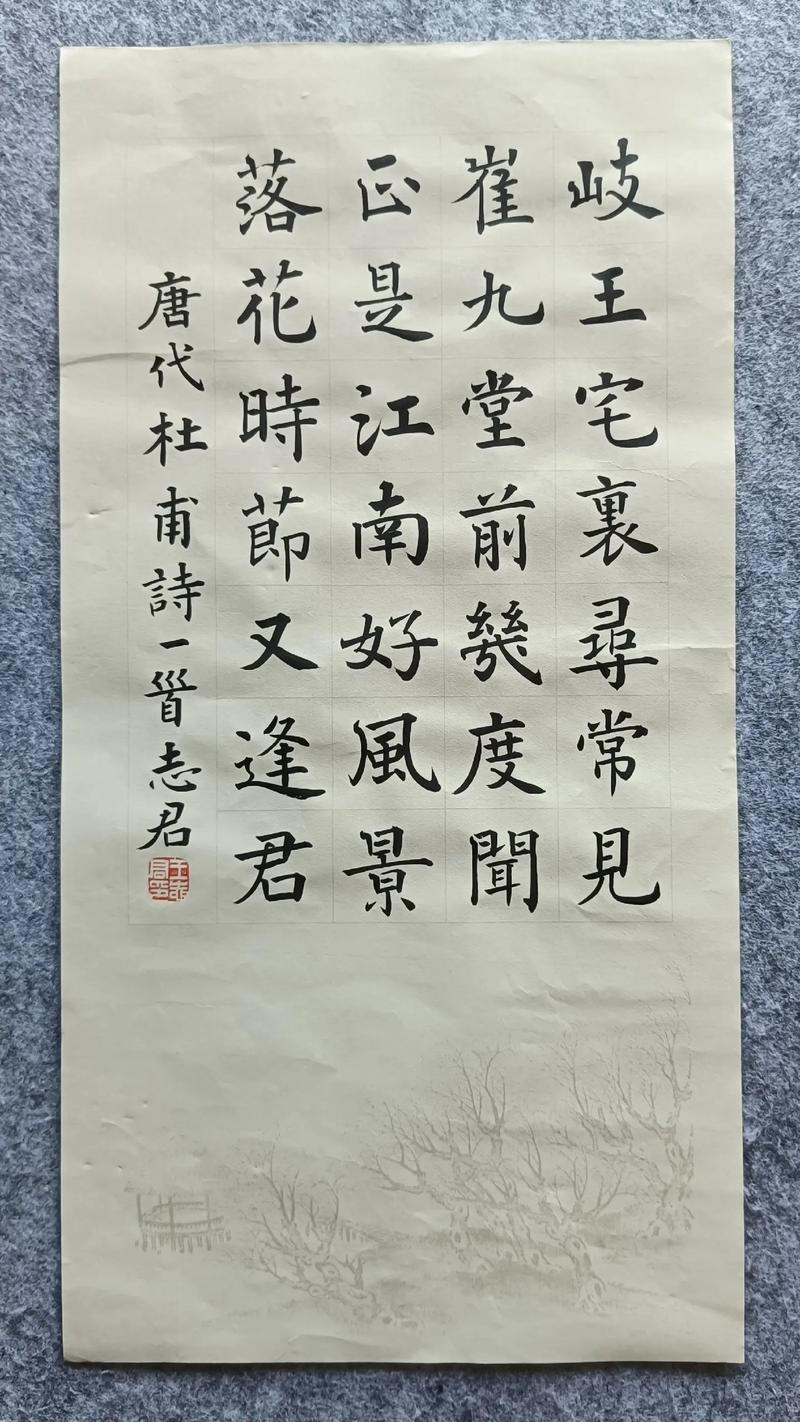 岐王宅裏尋常見
崔九堂前幾度聞
正是江南好風景
落花時節又逢君
唐代杜甫詩一首志君